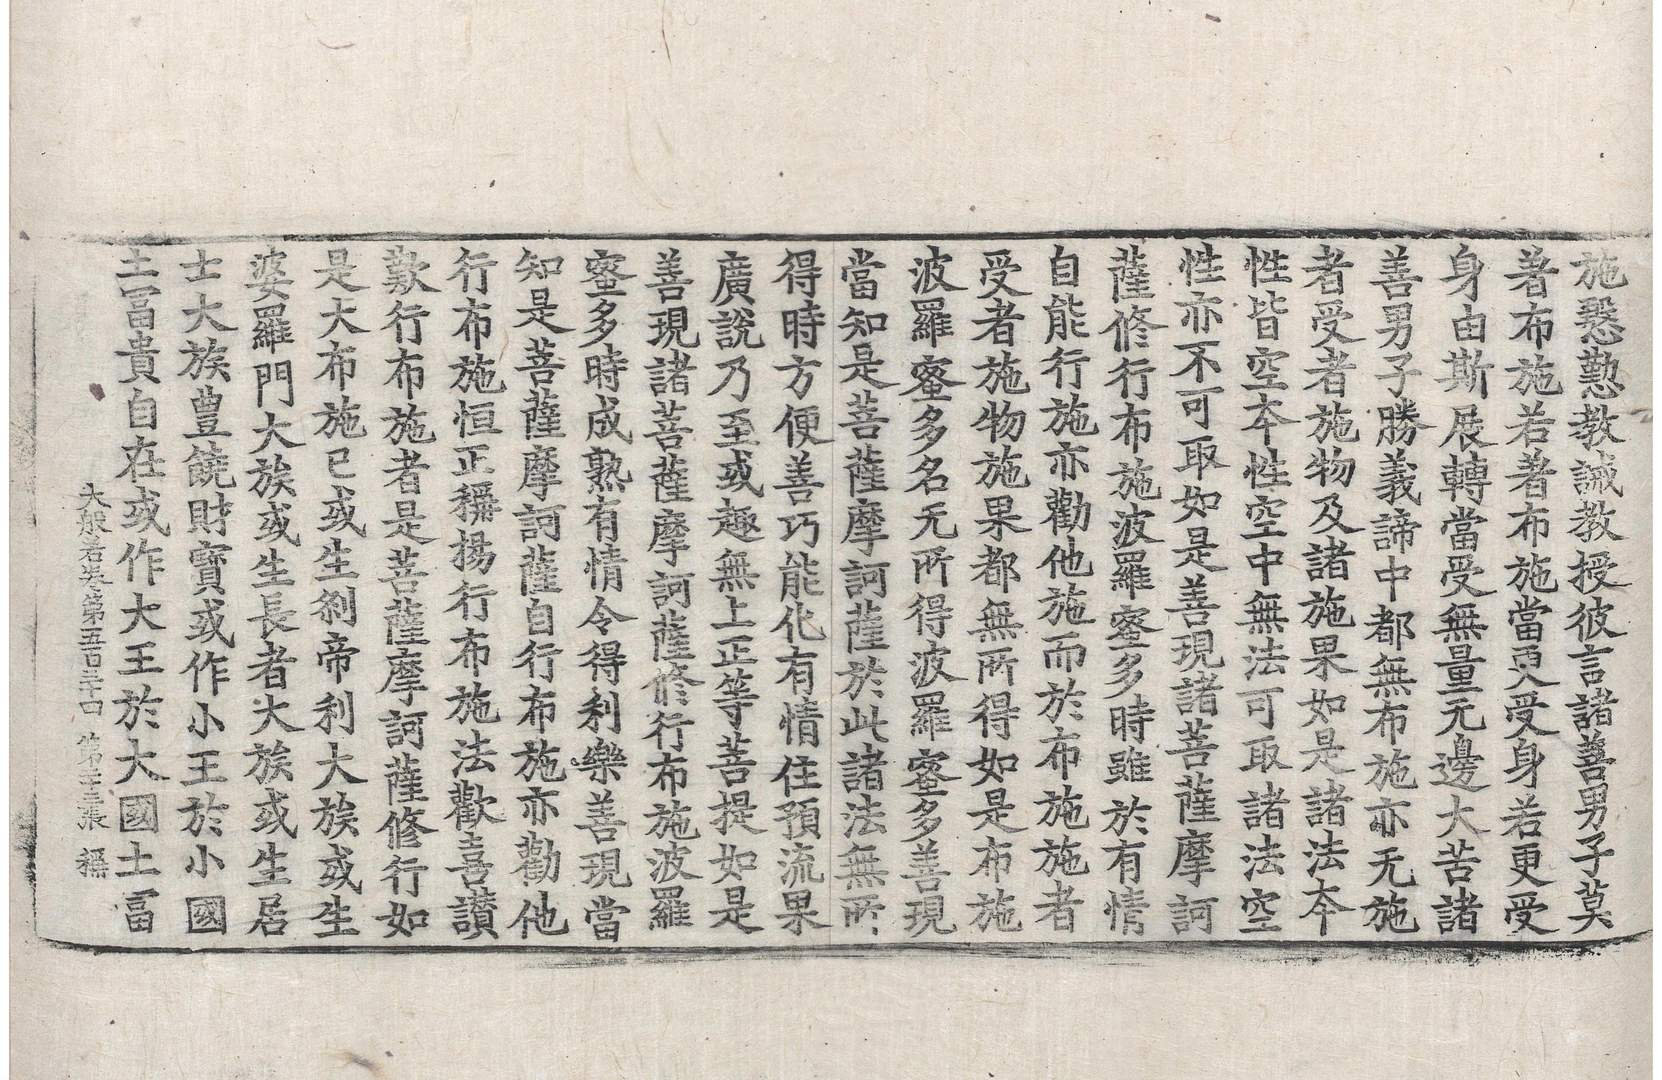 施慇懃教誡教授彼言諸善男子莫
著布施若著布施當更受身若更受
身由斯展轉當受無量无邊大苦諸
善男子勝義諦中都無布施亦无施
者受者施物及諸施果如是諸法本
性皆空本性空中無法可取諸法空
性亦不可取如是善現諸菩薩摩訶
薩修行布施波羅蜜多時雖於有情
自能行施亦勸他施而於布施施者
受者施物施果都無所得如是布施
波羅蜜多名无所得波羅蜜多善現
當知是菩薩摩訶薩於此諸法無所
得時方便善巧能化有情住預流果
廣說乃至或趣無上正等菩提如是
善現諸菩薩摩訶薩修行布施波羅
蜜多時成熟有情令得利樂善現當
知是菩薩摩訶薩自行布施亦勸他
行布施恒正稱揚行布施法歡喜讃
歎行布施者是菩薩摩訶薩修行如
是大布施已或生剎帝利大族或生
婆羅門大族或生長者大族或生居
士大族豊饒財寶或作小王於小國
土冨貴自在或作大王於大國土冨
大般若卷第五百三十四 第 張 稱